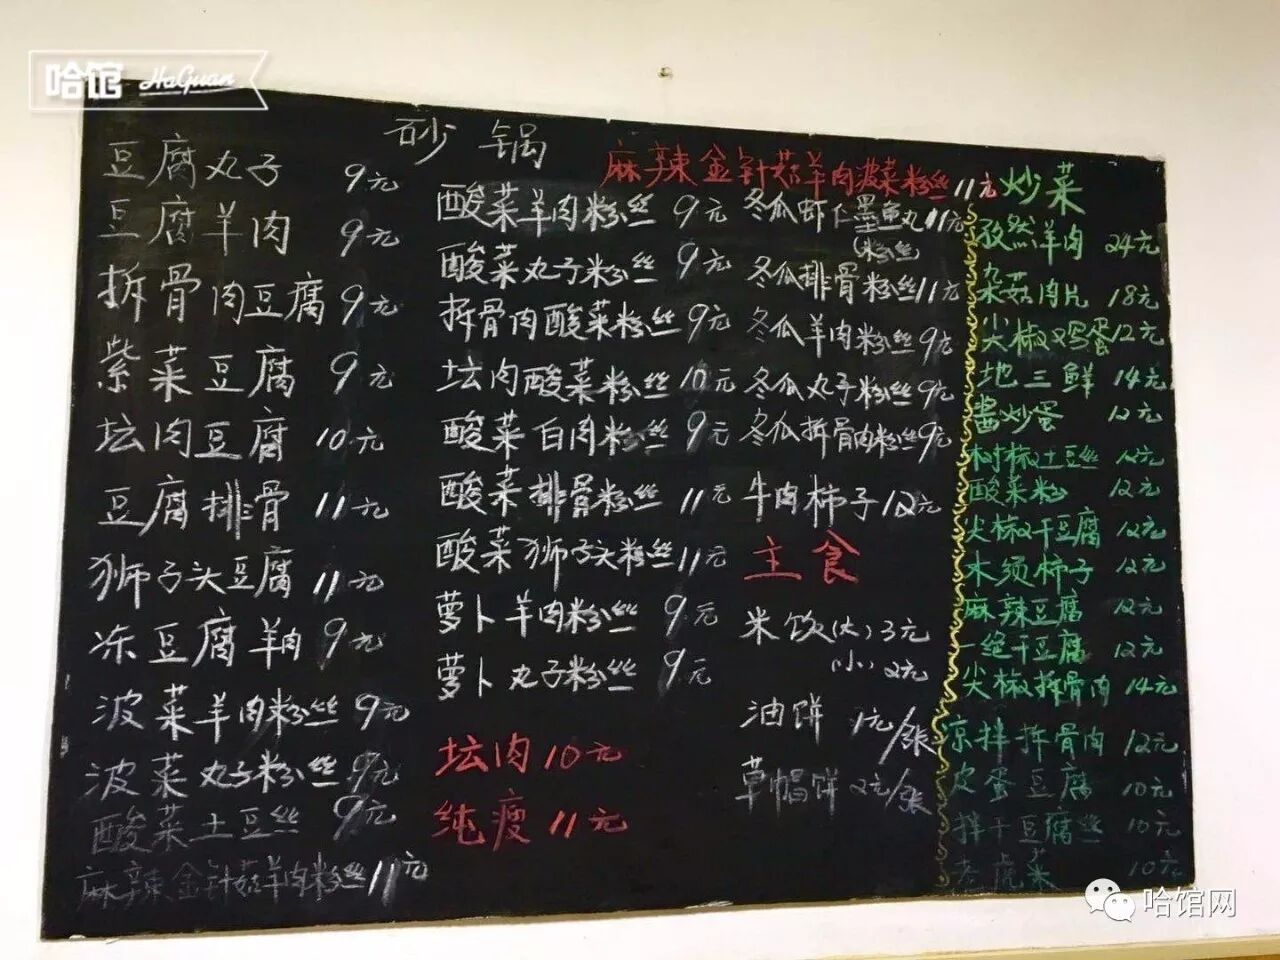 哈馆 HaGuan
砂锅
豆腐丸子 9元
豆腐羊肉 9元
拆骨肉豆腐 9元
紫菜豆腐 9元
坛肉豆腐 10元
豆腐排骨 11元
狮子头豆腐 11元
冻豆腐羊肉 9元
波菜羊肉粉丝 9元
波菜丸子粉丝 9元
酸菜土豆丝 9元
麻辣金针菇羊肉粉丝 11元
酸菜羊肉粉丝 9元
酸菜丸子粉丝 9元
拆骨肉酸菜粉丝 9元
坛肉酸菜粉丝 10元
酸菜白肉粉丝 9元
酸菜排骨粉丝 11元
酸菜狮子头粉丝 11元
萝卜羊肉粉丝 9元
萝卜丸子粉丝 9元
坛肉 10元
纯瘦 11元
麻辣金针菇羊肉波菜粉丝 11元
冬瓜虾仁墨鱼丸 11元
(粉丝)
冬瓜排骨粉丝 11元
冬瓜羊肉粉丝 9元
冬瓜丸子粉丝 9元
冬瓜拆骨肉粉丝 9元
牛肉柿子 12元
主食
米饮(大) 3元
(小) 2元
油饼 1元/张
草帽饼 2元/张
炒菜
孜然羊肉 24元
杂菇肉片 18元
尖椒鸡蛋 12元
地三鲜 14元
酱炒蛋 12元
树椒土豆丝 12元
酸菜粉 12元
尖椒干豆腐 12元
木须柿子 12元
麻辣豆腐 12元
一绝干豆腐 12元
尖椒拆骨肉 14元
凉拌拆骨肉 12元
皮蛋豆腐 10元
拌干豆腐丝 10元
老虎菜 10元
哈馆网